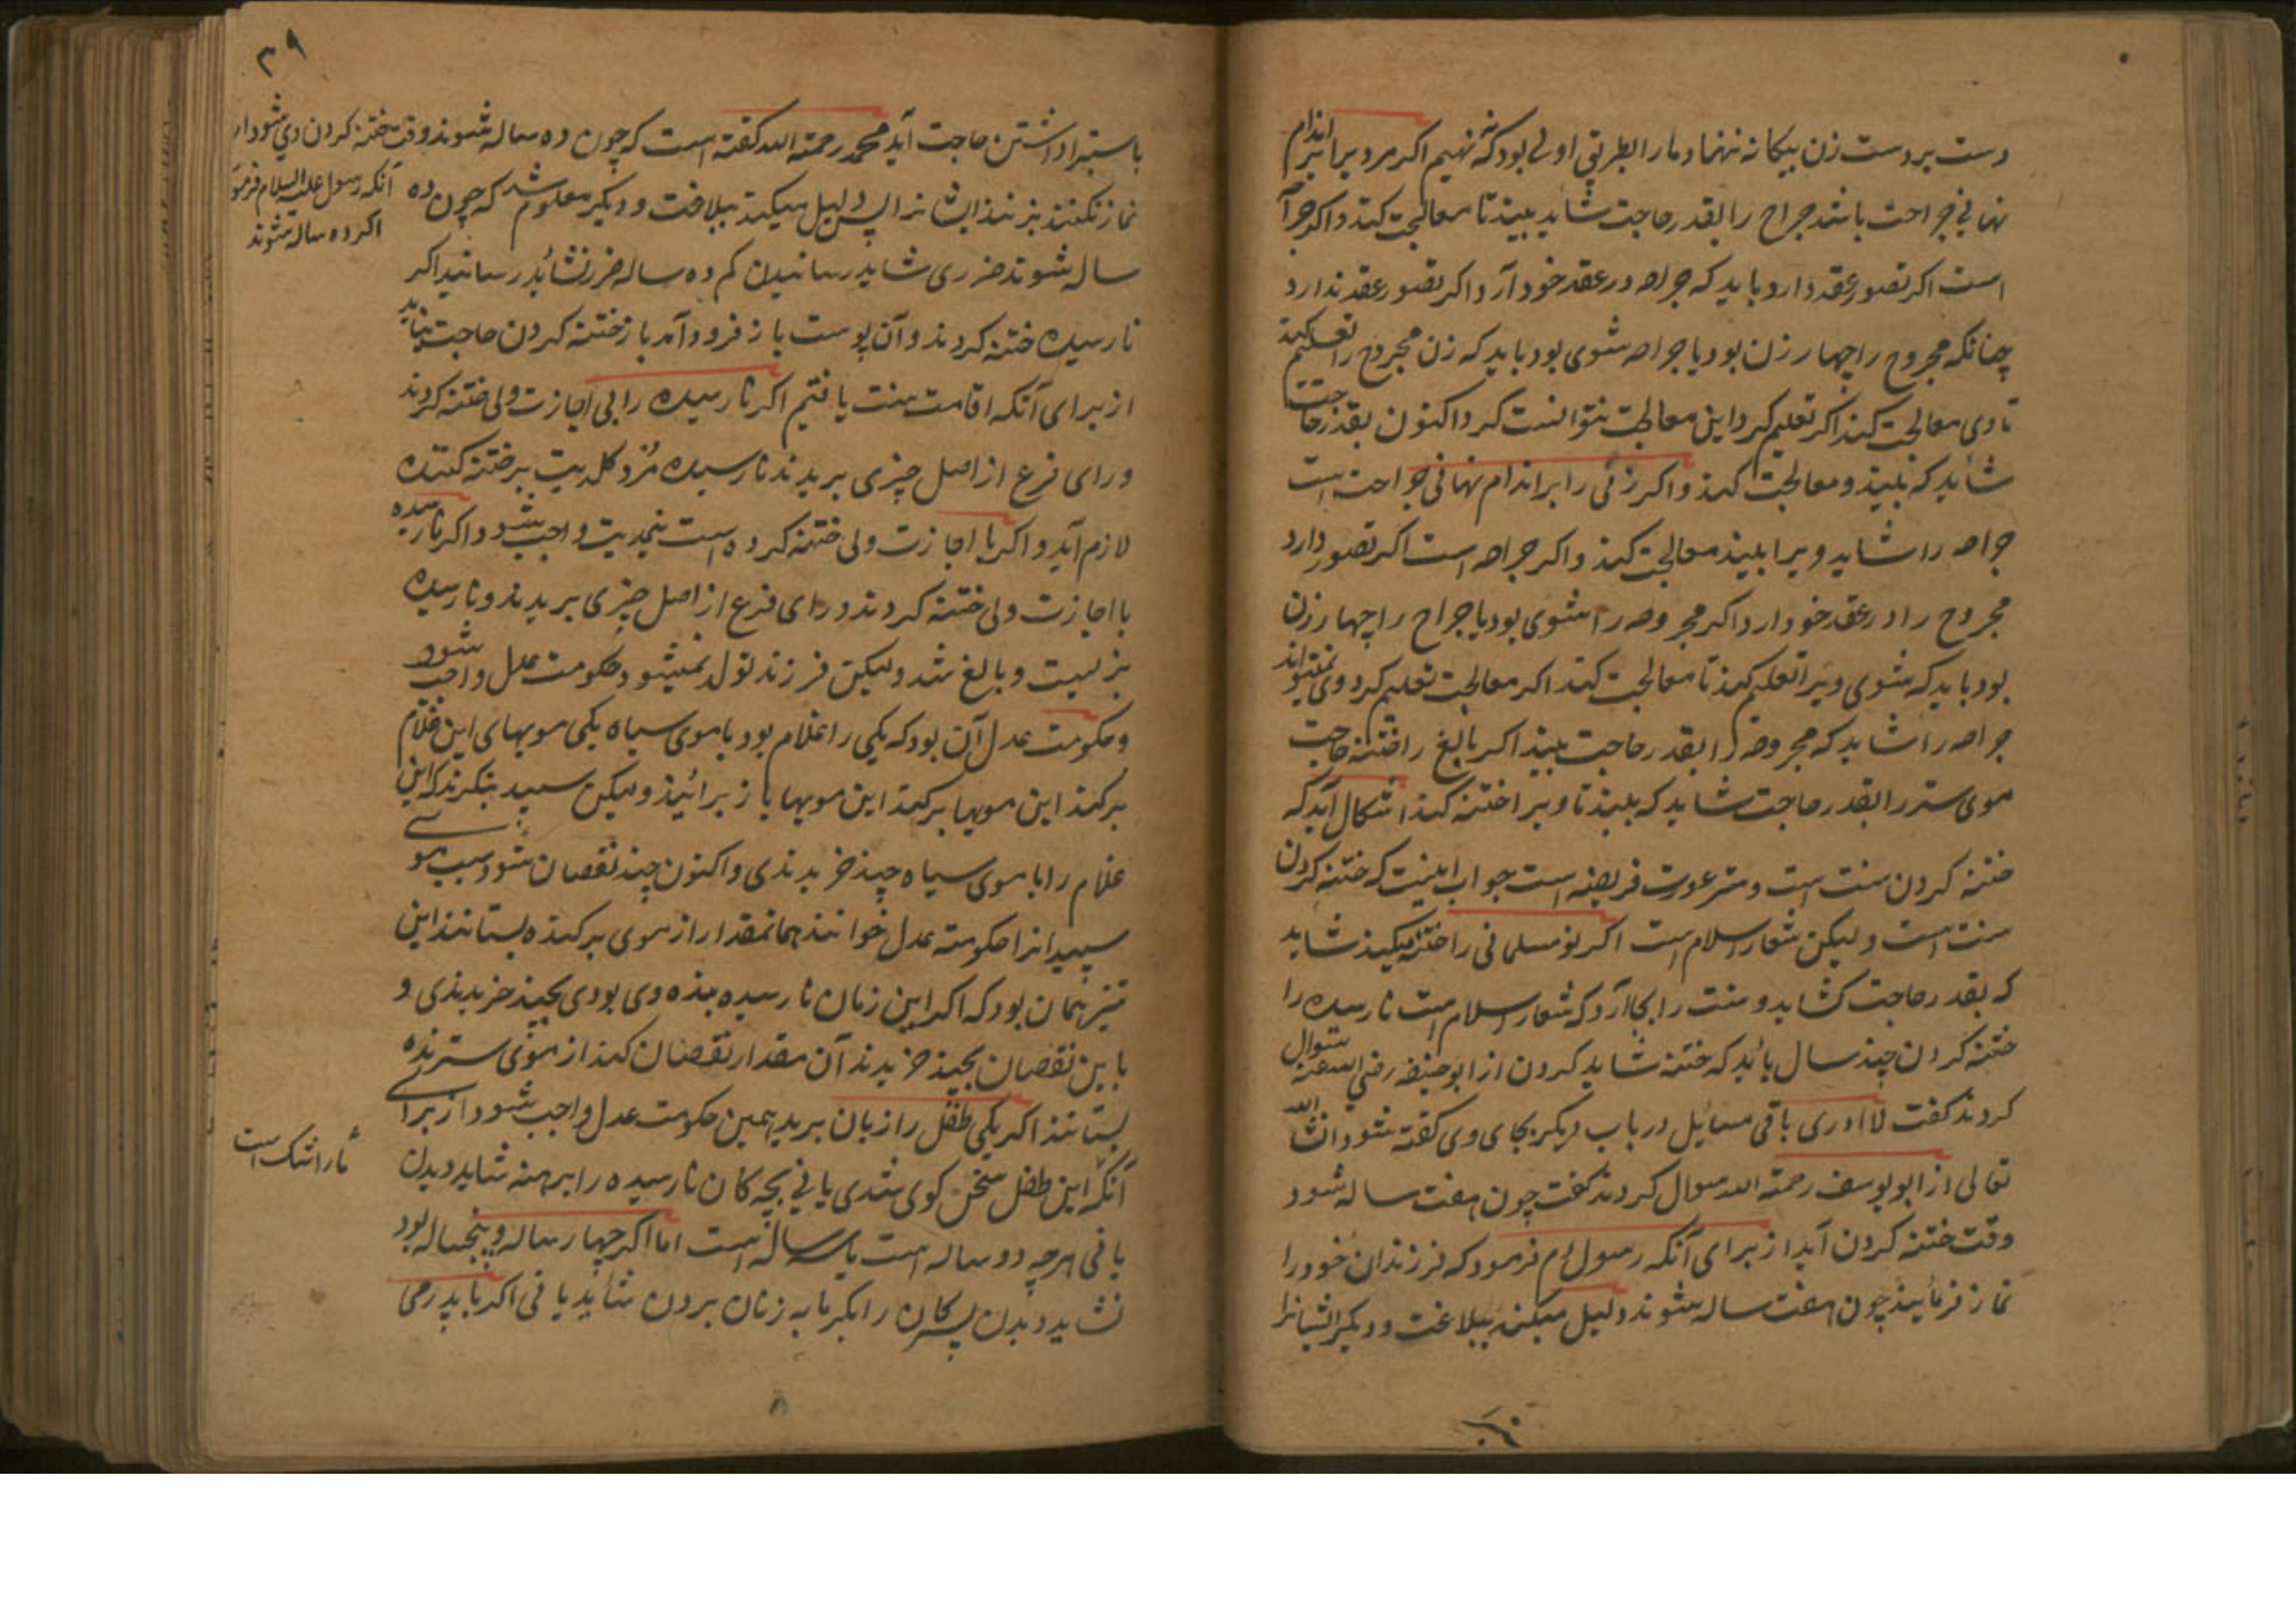 دست بر دست زن بیکانه ننهاد ما را بطریق اولی بود که ننهیم اکر مرد بر اندام
نهانی جراحت باشد جراح را بقدر حاجت شاید بیند تا معالجت کند و اکر جراحه
است اکر تصور عقد دارد باید که جراحه در عقد خود آرد اکر تصور عقد ندارد
چنانکه مجروح را چهار زن بود یا جراحه شوی بود باید که زن مجروح را تعلیم کند
تا وی معالجت کند اکر تعلیم کرد این معالجت نتوانست کرد اکنون بقدر حاجت
شاید که بیند و معالجت کند و اکر زنی را بر اندام نهانی جراحت است
جراحه را شاید ویرا بیند معالجت کند و اکر جراح است اکر تصور دارد
مجروح را در عقد خود آرد اکر مجروحه را شوی بود یا جراح را چهار زن
بود باید که شوی ویرا تعلیم کند تا معالجت کند اکر معالجت تعلیم کرد وی نمیتواند
جراحه را شاید که مجروحه را بقدر حاجت بیند اکر بالغ را ختنه حاجت
موی ستر را بقدر حاجت شاید که بیند تا ویرا ختنه کند اشکال آید که
ختنه کردن سنت است و ستر عورت فریضه است جواب اینست که ختنه کردن
سنت است ولیکن شعار اسلام است اکر نو مسلمانی را ختنه میکند شاید
که بقدر حاجت کشاید و سنت را بجا آرد که شعار اسلام است نارسیده را
ختنه کردن چند سال باید که ختنه شاید کردن از ابو حنیفه رضی الله عنه سوال
کردند کفت لا ادری باقی مسایل در باب دیکر بجای وی کفته شود انشا الله
تعالی از ابو یوسف رحمة الله سوال کردند کفت چون هفت ساله شود
وقت ختنه کردن آید از برای آنکه رسول م فرمود که فرزندان خود را
نماز فرمایید چون هفت ساله شوند دلیل میکند ببلاغت و دیکر ایشانرا
۳۹
باستبرا داشتن حاجت آید محمد رحمة الله کفته است که چون ده ساله شوند وقت ختنه کردن وی شود از
آنکه رسول علیه السلام فرمود
اکر ده ساله شوند
نماز نکنند بزنند ایشانرا پس دلیل میکند ببلاغت و دیکر معلوم شد که چون ده
ساله شوند ضرری شاید رسانیدن کم ده ساله ضرر نشاید رسانید اکر
نارسیده ختنه کردند و آن پوست باز فرود آمد باز ختنه کردن حاجت نیاید
از برای آنکه اقامت سنت یافتیم اکر نارسیده را بی اجازت ولی ختنه کردند
ورای فرع از اصل چیزی بریدند نارسیده مرد کل دیت بر ختنه کننده
لازم آید و اکر با اجازت ولی ختنه کرده است نیم دیت واجب شود و اکر نارسیده
با اجازت ولی ختنه کردند ورای فرع از اصل چیزی بریدند و نارسیده
بزیست و بالغ شد ولیکن فرزند تولد نمیشود حکومت عدل واجب شود
و حکومت عدل آن بود که یکی را غلام بود با موی سیاه یکی مویهای این غلام
برکند این مویها برکند این مویها باز برائید ولیکن سپید بنکرند که این
غلام را با موی سیاه چند خریدندی و اکنون چند نقصان شود سبب موی
سپید انرا حکومته عدل خوانند همانمقدار از موی برکنده بستانند این
نیز همان بود که اکر این زمان نارسیده بنده وی بودی بچند خریدندی و
با این نقصان بچند خریدند آن مقدار نقصان کند از موی سترنده
بستانند اکر یکی طفل را زبان برید همین حکومت عدل واجب شود از برای
آنکه این طفل سخن کوی شدی یا نی بچه کان نارسیده را برهنه شاید دیدن
یا نی هرچه دو ساله است یا سه ساله است اما اکر چهار ساله و پنجساله بود
نشاید دیدن پسرکان را بکرمابه زنان بردن شاید یا نی اکر با پدر می
ما را شک است